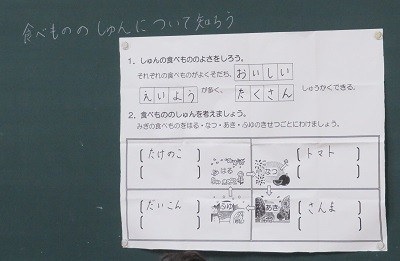 食べもののしゅんについて知ろう
1．しゅんの食べもののよさをしろう。
それぞれの食べものがよくそだち、おいしい
えいようが多く、たくさんしゅうかくできる。
2．食べもののしゅんを考えましょう。
みぎの食べものをはる・なつ・あき・ふゆのきせつごとにわけましょう。
たけのこ はる なつ トマト
だいこん ふゆ あき さんま